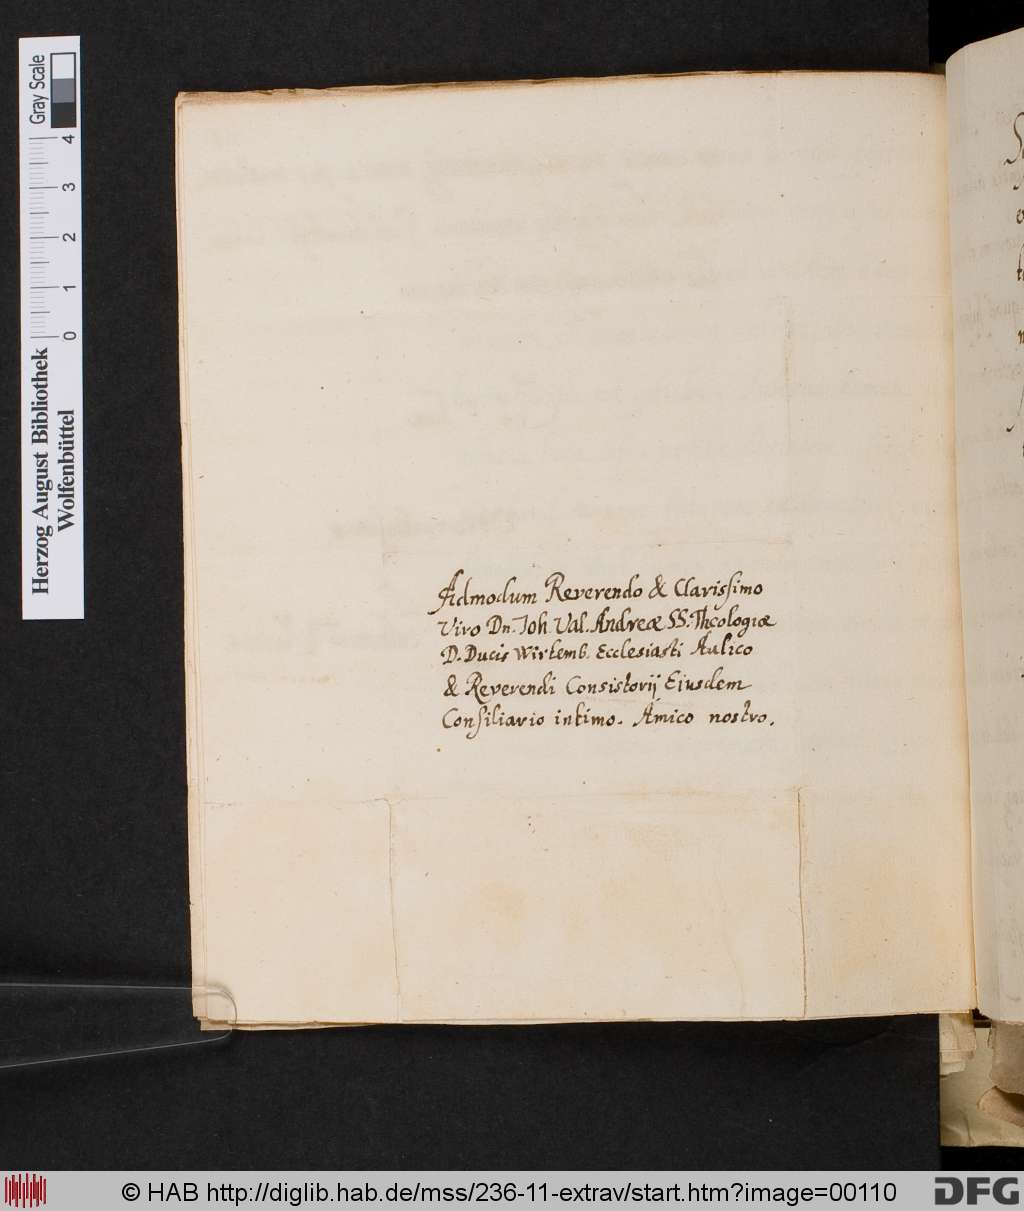 Admodum Reverendo & Clarissimo
Viro Dn. Joh. Val. Andreæ SS. Theologiæ
D. Ducis Wirtemb. Ecclesiasti Aulico
& Reverendi Consistorij Eiusdem
Consiliario intimo. Amico nostro.
Gray Scale
4
3
2
1
0
Herzog August Bibliothek
Wolfenbüttel
© HAB http://diglib.hab.de/mss/236-11-extrav/start.htm?image=00110
DFG